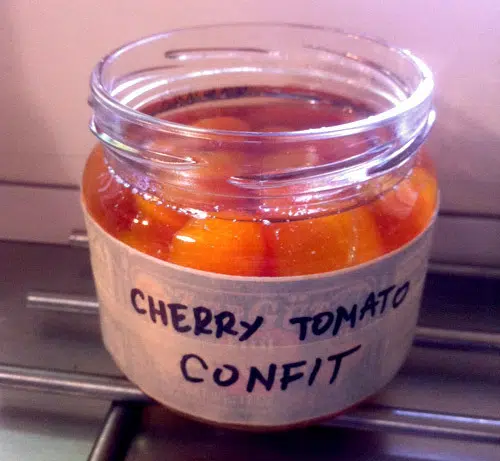 CHERRY TOMATO
CONFIT